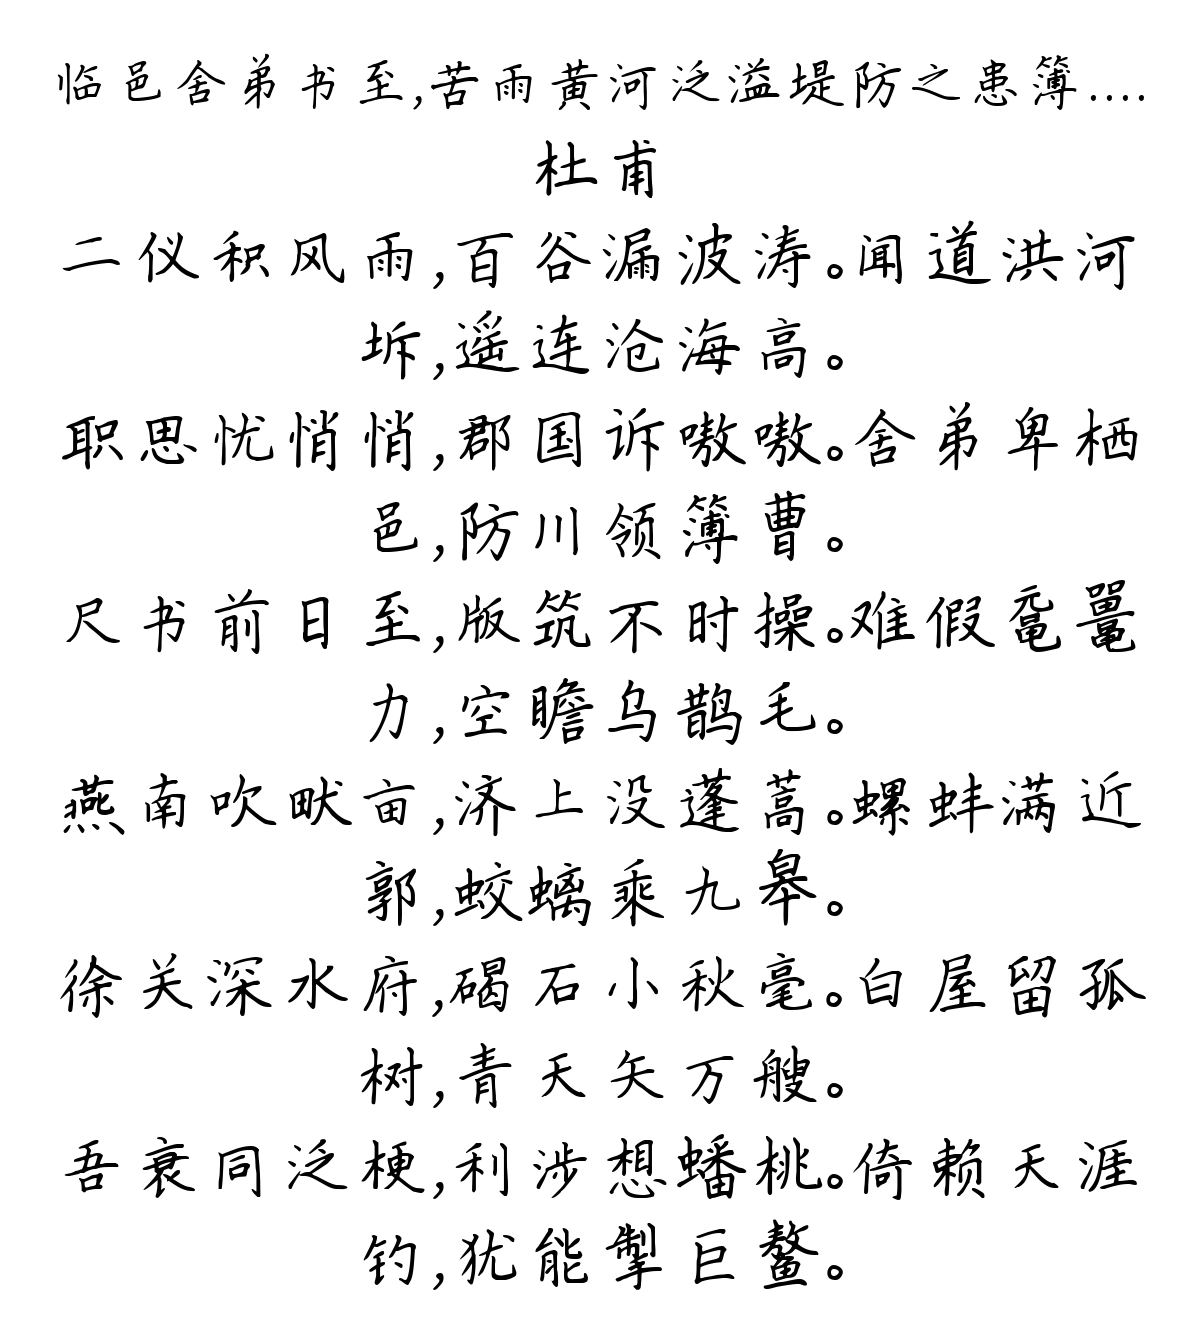 临邑舍弟书至,苦雨黄河泛溢堤防之患簿....
杜甫
二仪积风雨,百谷漏波涛。闻道洪河
坼,遥连沧海高。
职思忧悄悄,郡国诉嗷嗷。舍弟卑栖
邑,防川领簿曹。
尺书前日至,版筑不时操。难假鼋鼍
力,空瞻乌鹊毛。
燕南吹畎亩,济上没蓬蒿。螺蚌满近
郭,蛟螭乘九皋。
徐关深水府,碣石小秋毫。白屋留孤
树,青天矢万艘。
吾衰同泛梗,利涉想蟠桃。倚赖天涯
钓,犹能掣巨鳌。